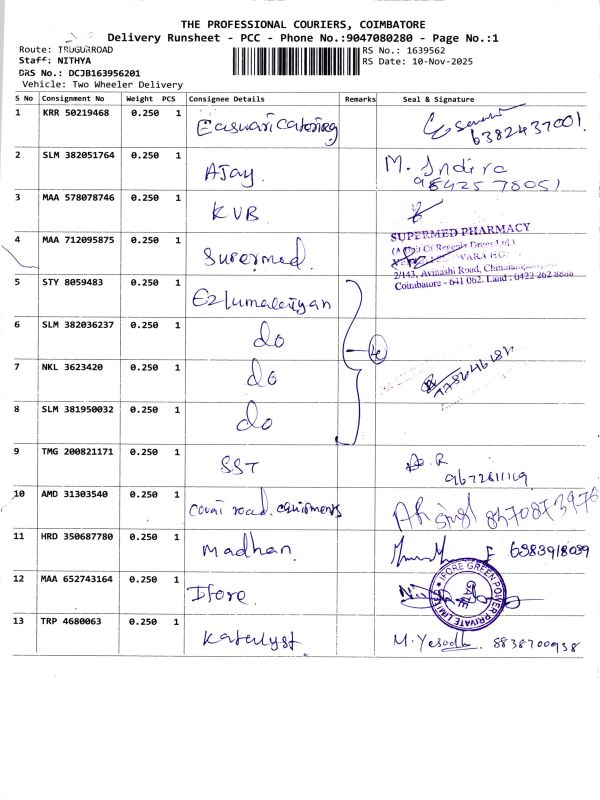 THE PROFESSIONAL COURIERS, COIMBATORE
Delivery Runsheet - PCC - Phone No.:9047080280 - Page No.:1
Route: TRUGURROAD
RS No.: 1639562
Staff: NITHYA
RS Date: 10-Nov-2025
DRS No.: DCJB163956201
Vehicle: Two Wheeler Delivery
S No Consignment No Weight PCS Consignee Details Remarks Seal & Signature
1 KRR 50219468 0.250 1 Easwari Catering
6382437001.
2 SLM 382051764 0.250 1 Ajay. M. Indira
3 MAA 578078746 0.250 1 KVB
4 MAA 712095875 0.250 1 Supermed.
SUPERMED PHARMACY
2/143, Avinashi Road,
Coimbatore - 641 062. Land : 0422 262
5 STY 8059483 0.250 1 Ezhumalaiyan
6 SLM 382036237 0.250 1 do
7 NKL 3623420 0.250 1 do
8 SLM 381950032 0.250 1 do
9 TMG 200821171 0.250 1 SST
10 AMD 31303540 0.250 1 Covai road. equipments
8470873976
11 HRD 350687780 0.250 1 Madhan. 6383918039
12 MAA 652743164 0.250 1 Ifore.
IFORE GREEN POWER PRIVATE LIMITED
13 TRP 4680063 0.250 1 Katalyst. M. Yesodh. 8838700938